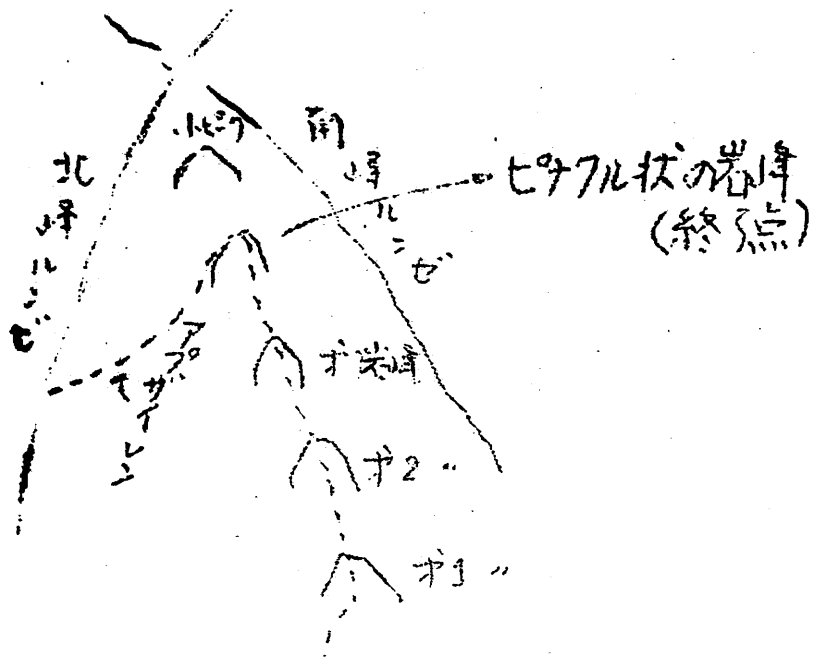 小ピーク
南峰ルンゼ
北峰ルンゼ
ピナクル状の岩峰
(終了点)
アプザイレン
才 岩峰
才2 〃
才1 〃